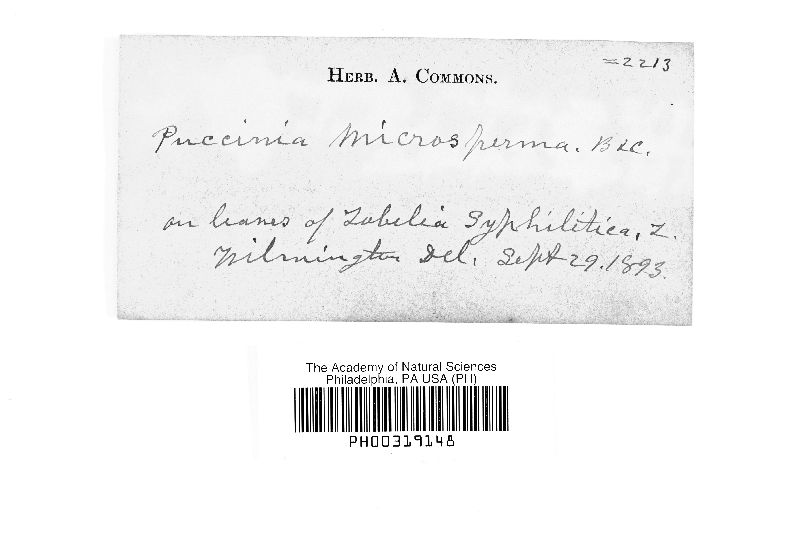 =2213
HERB. A. COMMONS.
Puccinia microsperma. B&C.
on leaves of Lobelia Syphilitica, L.
Wilmington Del. Sept 29. 1893.
The Academy of Natural Sciences
Philadelphia, PA USA (PH)
PH00319148